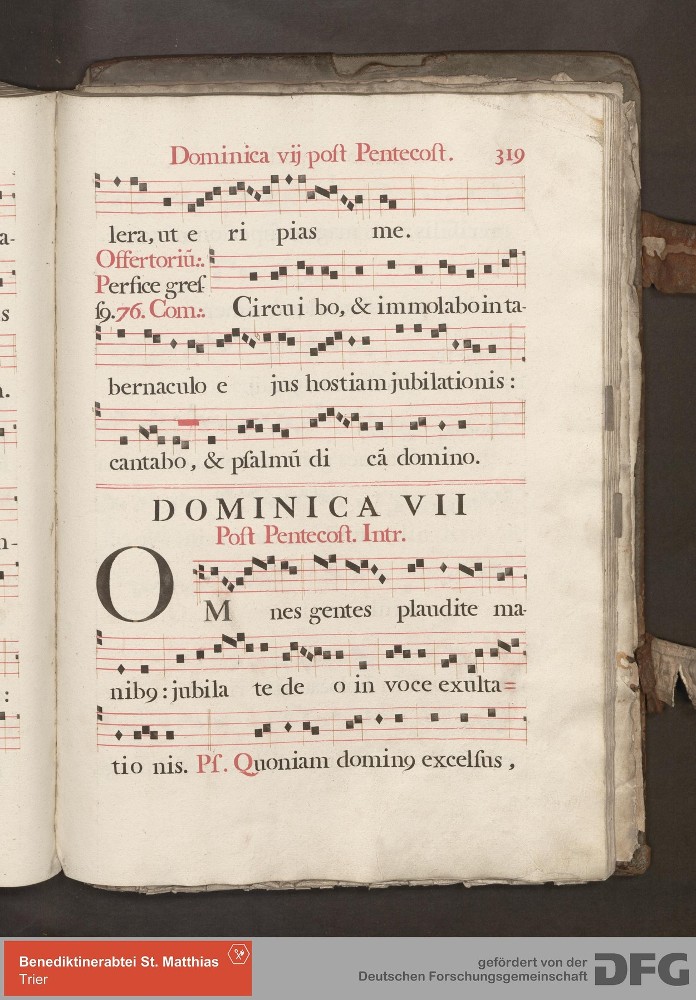 Dominica vij poſt Pentecoſt. 319
lera, ut e ri pias me.
Offertoriū:.
Perfice greſ
f9. 76. Com:. Circui bo, & immolabo in ta-
bernaculo e jus hostiam jubilationis :
cantabo, & pſalmū di cā domino.
DOMINICA VII
Poſt Pentecoſt. Intr.
OM nes gentes plaudite ma-
nib9 : jubila te de o in voce exulta=
tio nis. Pſ. Quoniam domin9 excelſus,
a-
s
n-
:
Benediktinerabtei St. Matthias
Trier
gefördert von der
Deutschen Forschungsgemeinschaft
DFG